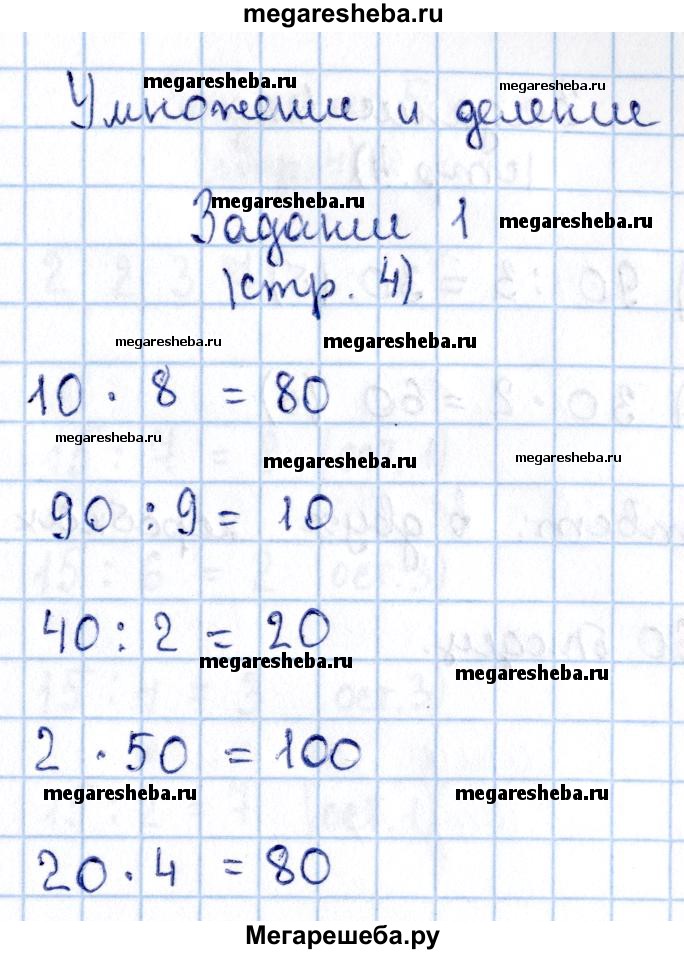 megaresheba.ru
megaresheba.ru megaresheba.ru
Умножение и деление
megaresheba.ru
Задание 1 megaresheba.ru
(стр. 4).
megaresheba.ru megaresheba.ru
10 · 8 = 80
megaresheba.ru
megaresheba.ru megaresheba.ru
90 : 9 = 10
40 : 2 = 20
megaresheba.ru megaresheba.ru
2 · 50 = 100
megaresheba.ru megaresheba.ru
20 · 4 = 80
Мегарешеба.ру